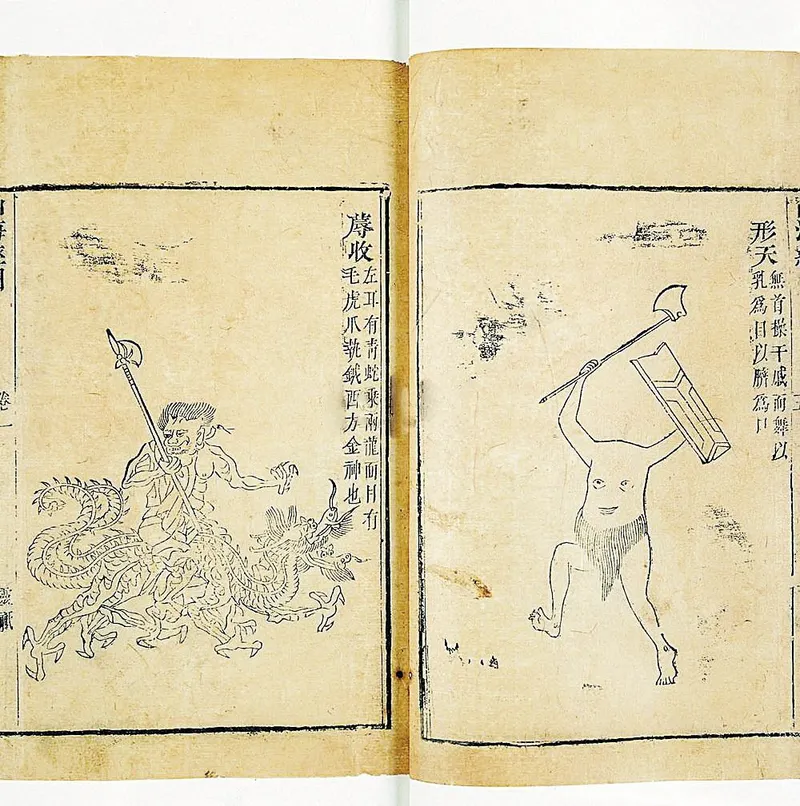 形天
無首操干戚而舞以
乳爲目以臍爲口
蓐收
左耳有青蛇乘兩龍面目有
毛虎爪執鉞西方金神也